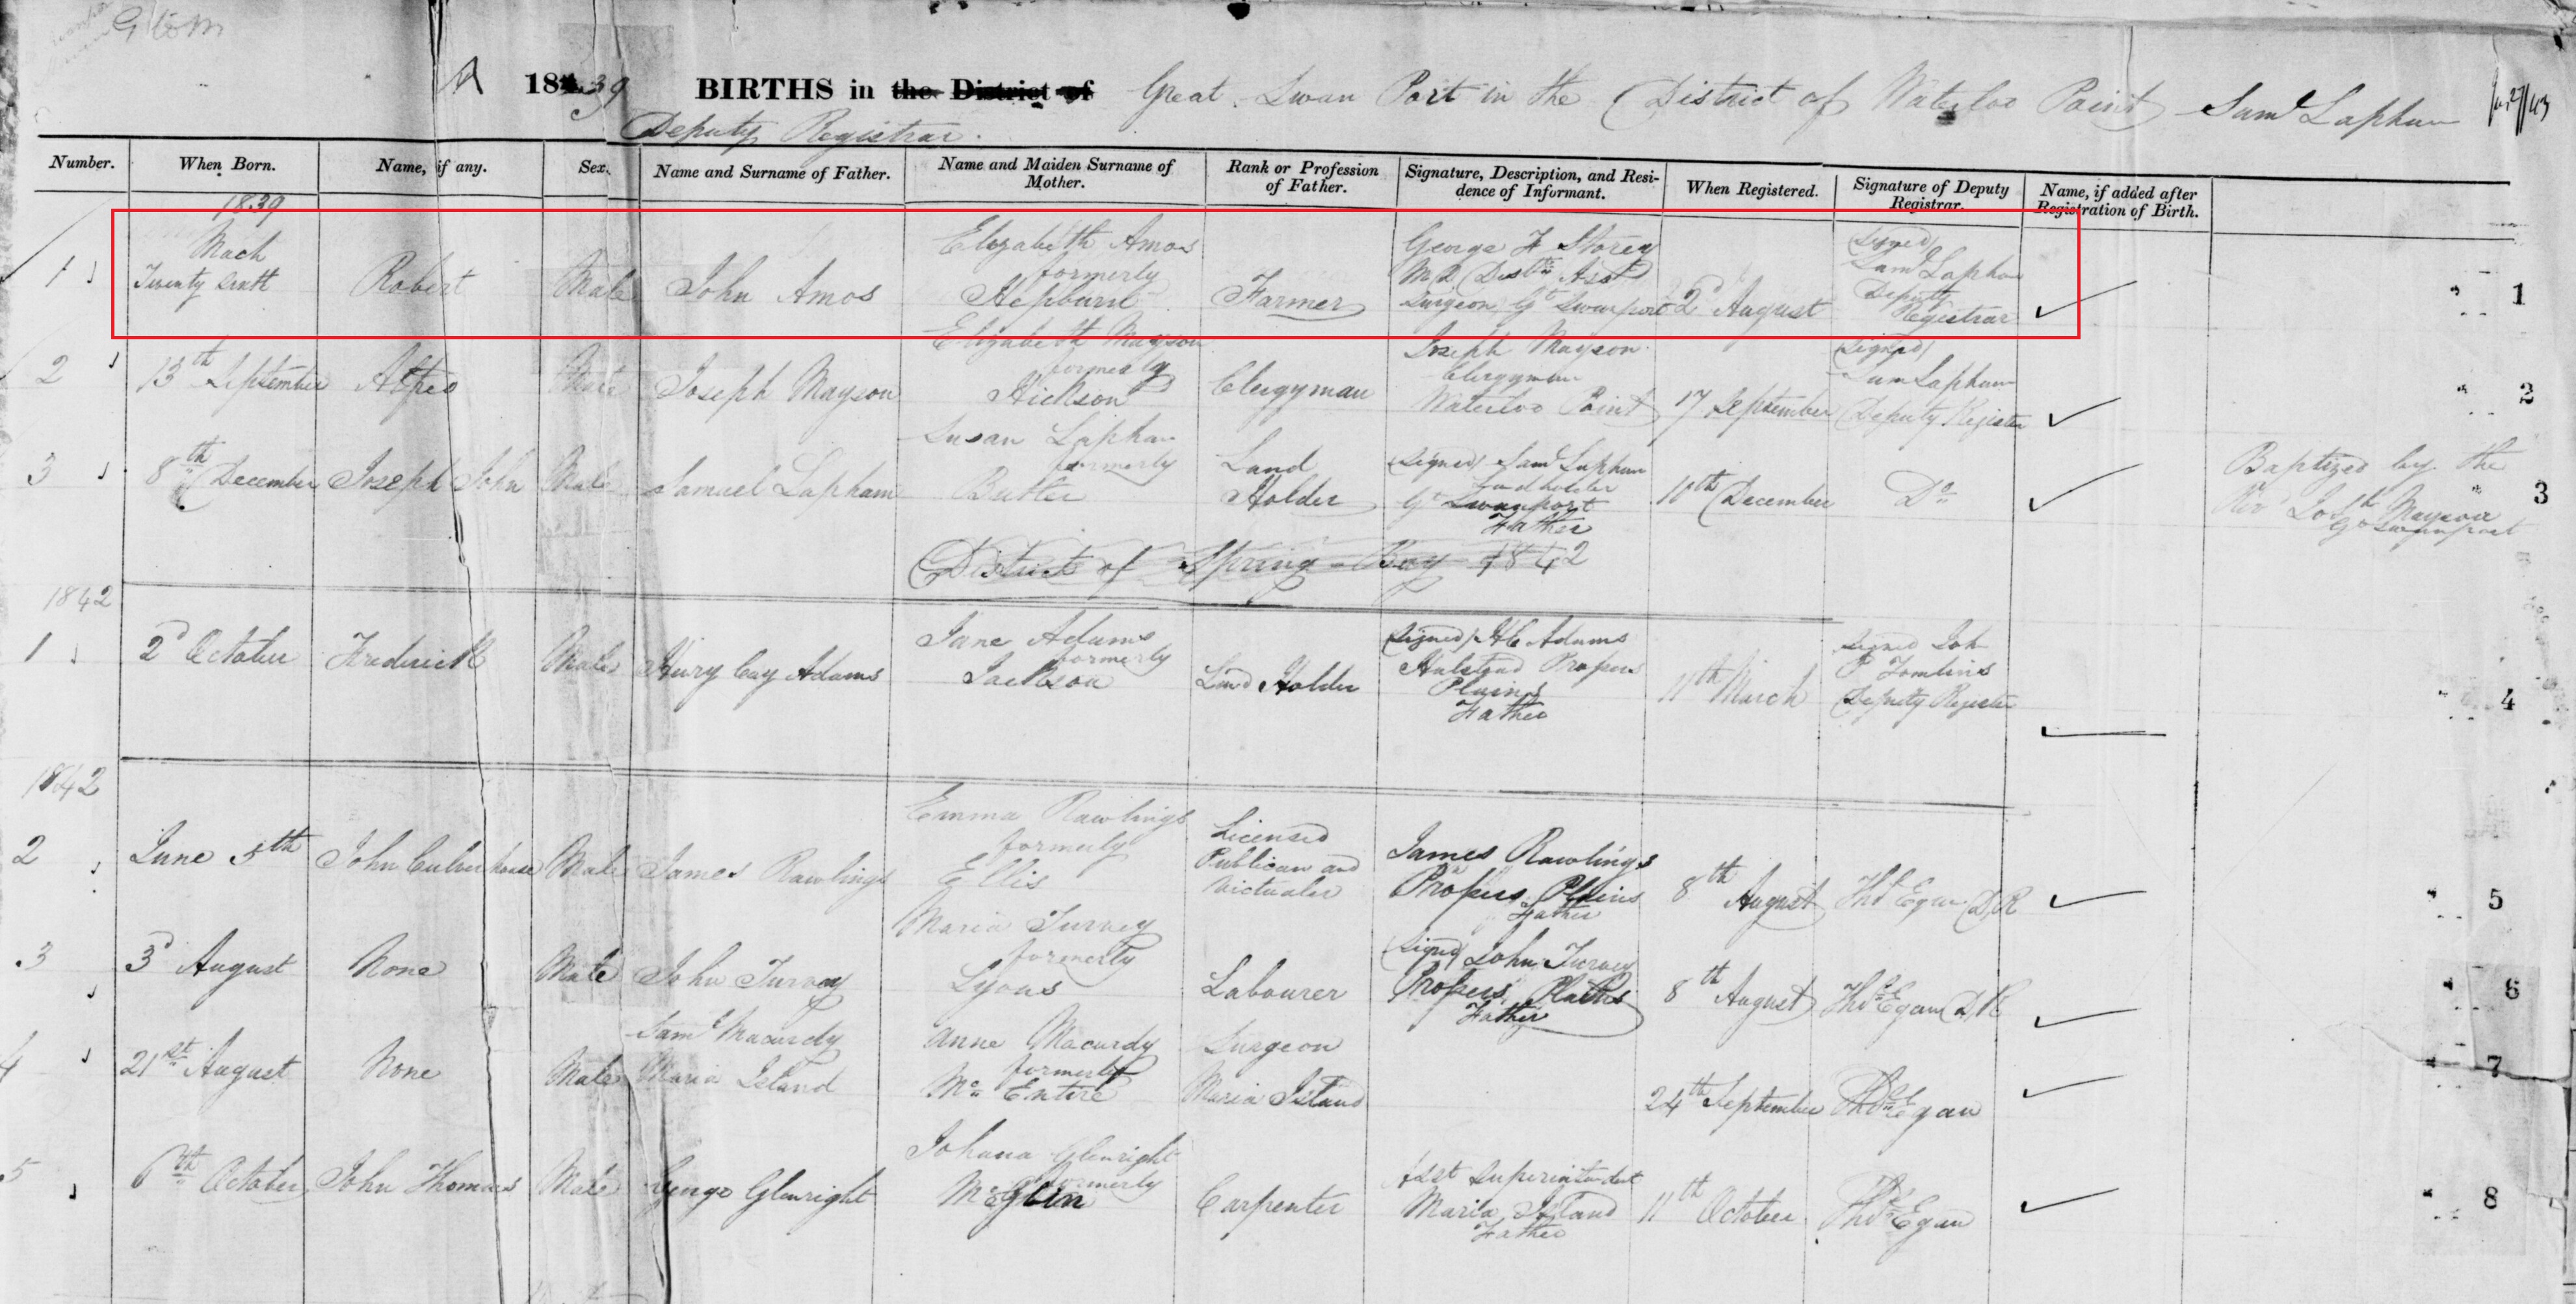 A 1839 BIRTHS in the District of Great Swan Port in the District of Waterloo Point Saml Lapham
Deputy Registrar.
Number. When Born. Name, if any. Sex. Name and Surname of Father. Name and Maiden Surname of Mother. Rank or Profession of Father. Signature, Description, and Residence of Informant. When Registered. Signature of Deputy Registrar. Name, if added after Registration of Birth.
1839
1 Mach Twenty Sixth Robert Male John Amos Elizabeth Amos formerly Hepburn Farmer George F Storey M.D. Distt Asst Surgeon Gt Swanport 2d August (Signed) Saml Lapham Deputy Registrar 1
2 13th September Alfred Male Joseph Mayson Elizabeth Mayson formerly Hickson Clergyman Joseph Mayson Clergyman Waterloo Point 17 September (Signed) Sam Lapham Deputy Register 2
3 8th December Joseph John Male Samuel Lapham Susan Lapham formerly Butler Land Holder (Signed) Saml Lapham Landholder Gt Swanport Father 10th December Do Baptized by the Revd Josh Mayson Gt Swanport 3
District of Spring Bay 1842
1842
1 2d October Frederick Male Henry Cay Adams Jane Adams formerly Jackson Land Holder (Signed) H C Adams Halstead Prosers Plains Father 11th March Signed Joh P Tomlins Deputy Register 4
1842
2 June 5th John Culverhouse Male James Rawlings Emma Rawlings formerly Ellis Licensed Publican and Victualer James Rawlings Prosers Plains Father 8th August Thos Egan D,R 5
3 3d August None Male John Turvey Maria Turvey formerly Lyons Labourer (Signed) John Turvey Prosers Plains Father 8th August Thos Egan D,R 6
4 21st August None Male Saml Macurdy Maria Island Anne Macurdy formerly Mc Entire Surgeon Maria Island 24th September Thos Egan 7
5 6th October John Thomas Male George Glenright Johana Glenright formerly McGlin Carpenter Asst Superintendent Maria Island Father 11th October Thos Egan 8